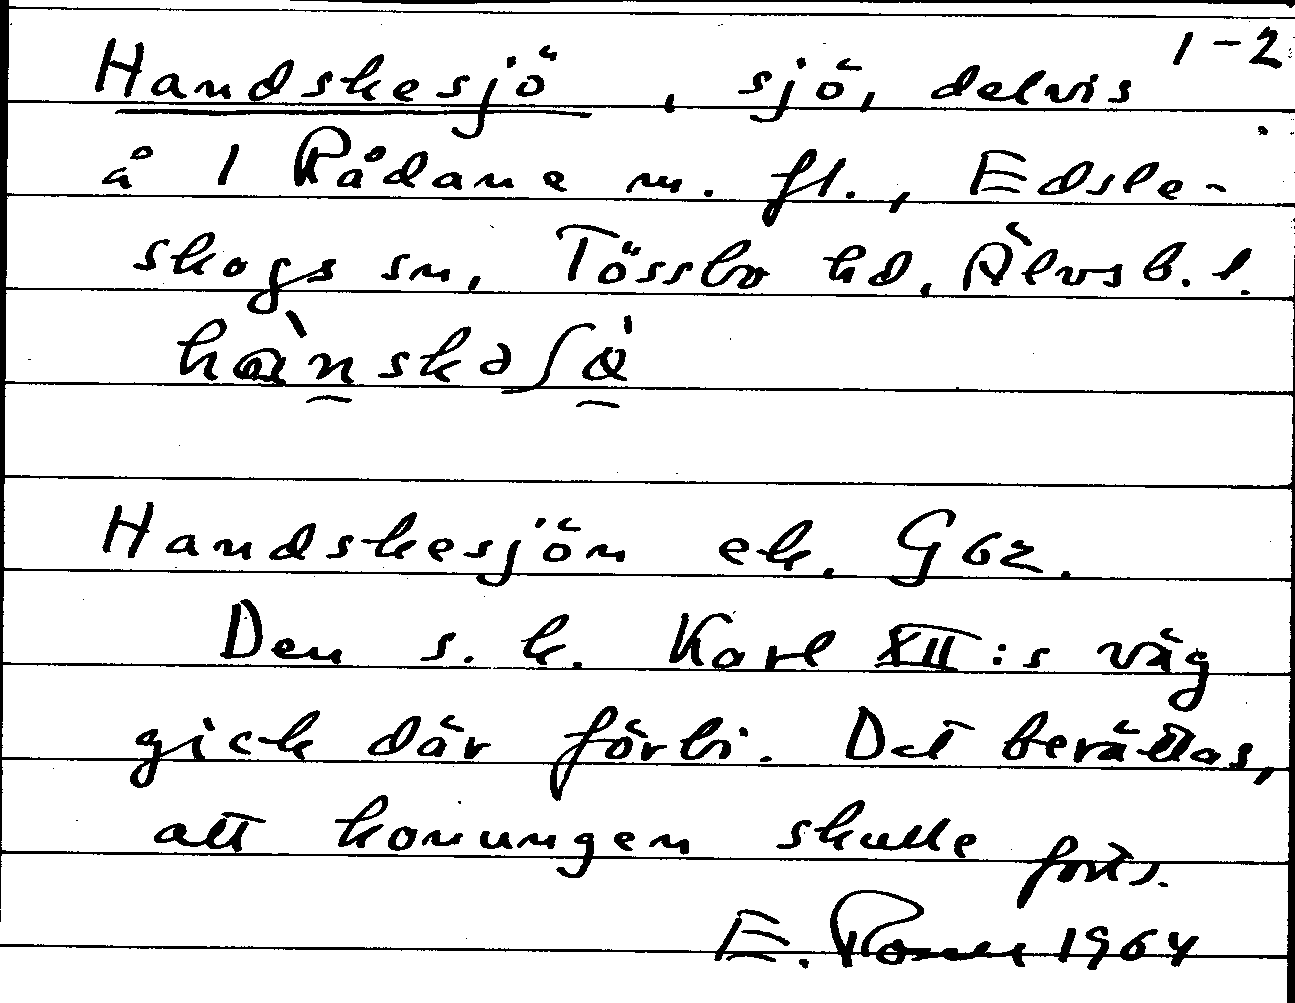 1-2
Handskesjö, sjö, delvis
å 1 Rådane m. fl., Edsle-
skogs sn, Tössbo hd. Älvsb. l.
Handskesjön ek. G62.
Den s. k. Karl XII:s väg
gick där förbi. Det berättas,
att konungen skulle forts.
E. 1964